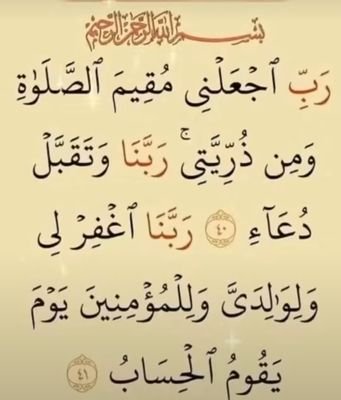 بِسْمِ اللَّهِ الرَّحْمَٰنِ الرَّحِيمِ
رَبِّ ٱجْعَلْنِى مُقِيمَ ٱلصَّلَوٰةِ
وَمِن ذُرِّيَّتِى ۚ رَبَّنَا وَتَقَبَّلْ
دُعَآءِ ٤٠ رَبَّنَا ٱغْفِرْ لِى
وَلِوَٰلِدَىَّ وَلِلْمُؤْمِنِينَ يَوْمَ
يَقُومُ ٱلْحِسَابُ ٤١